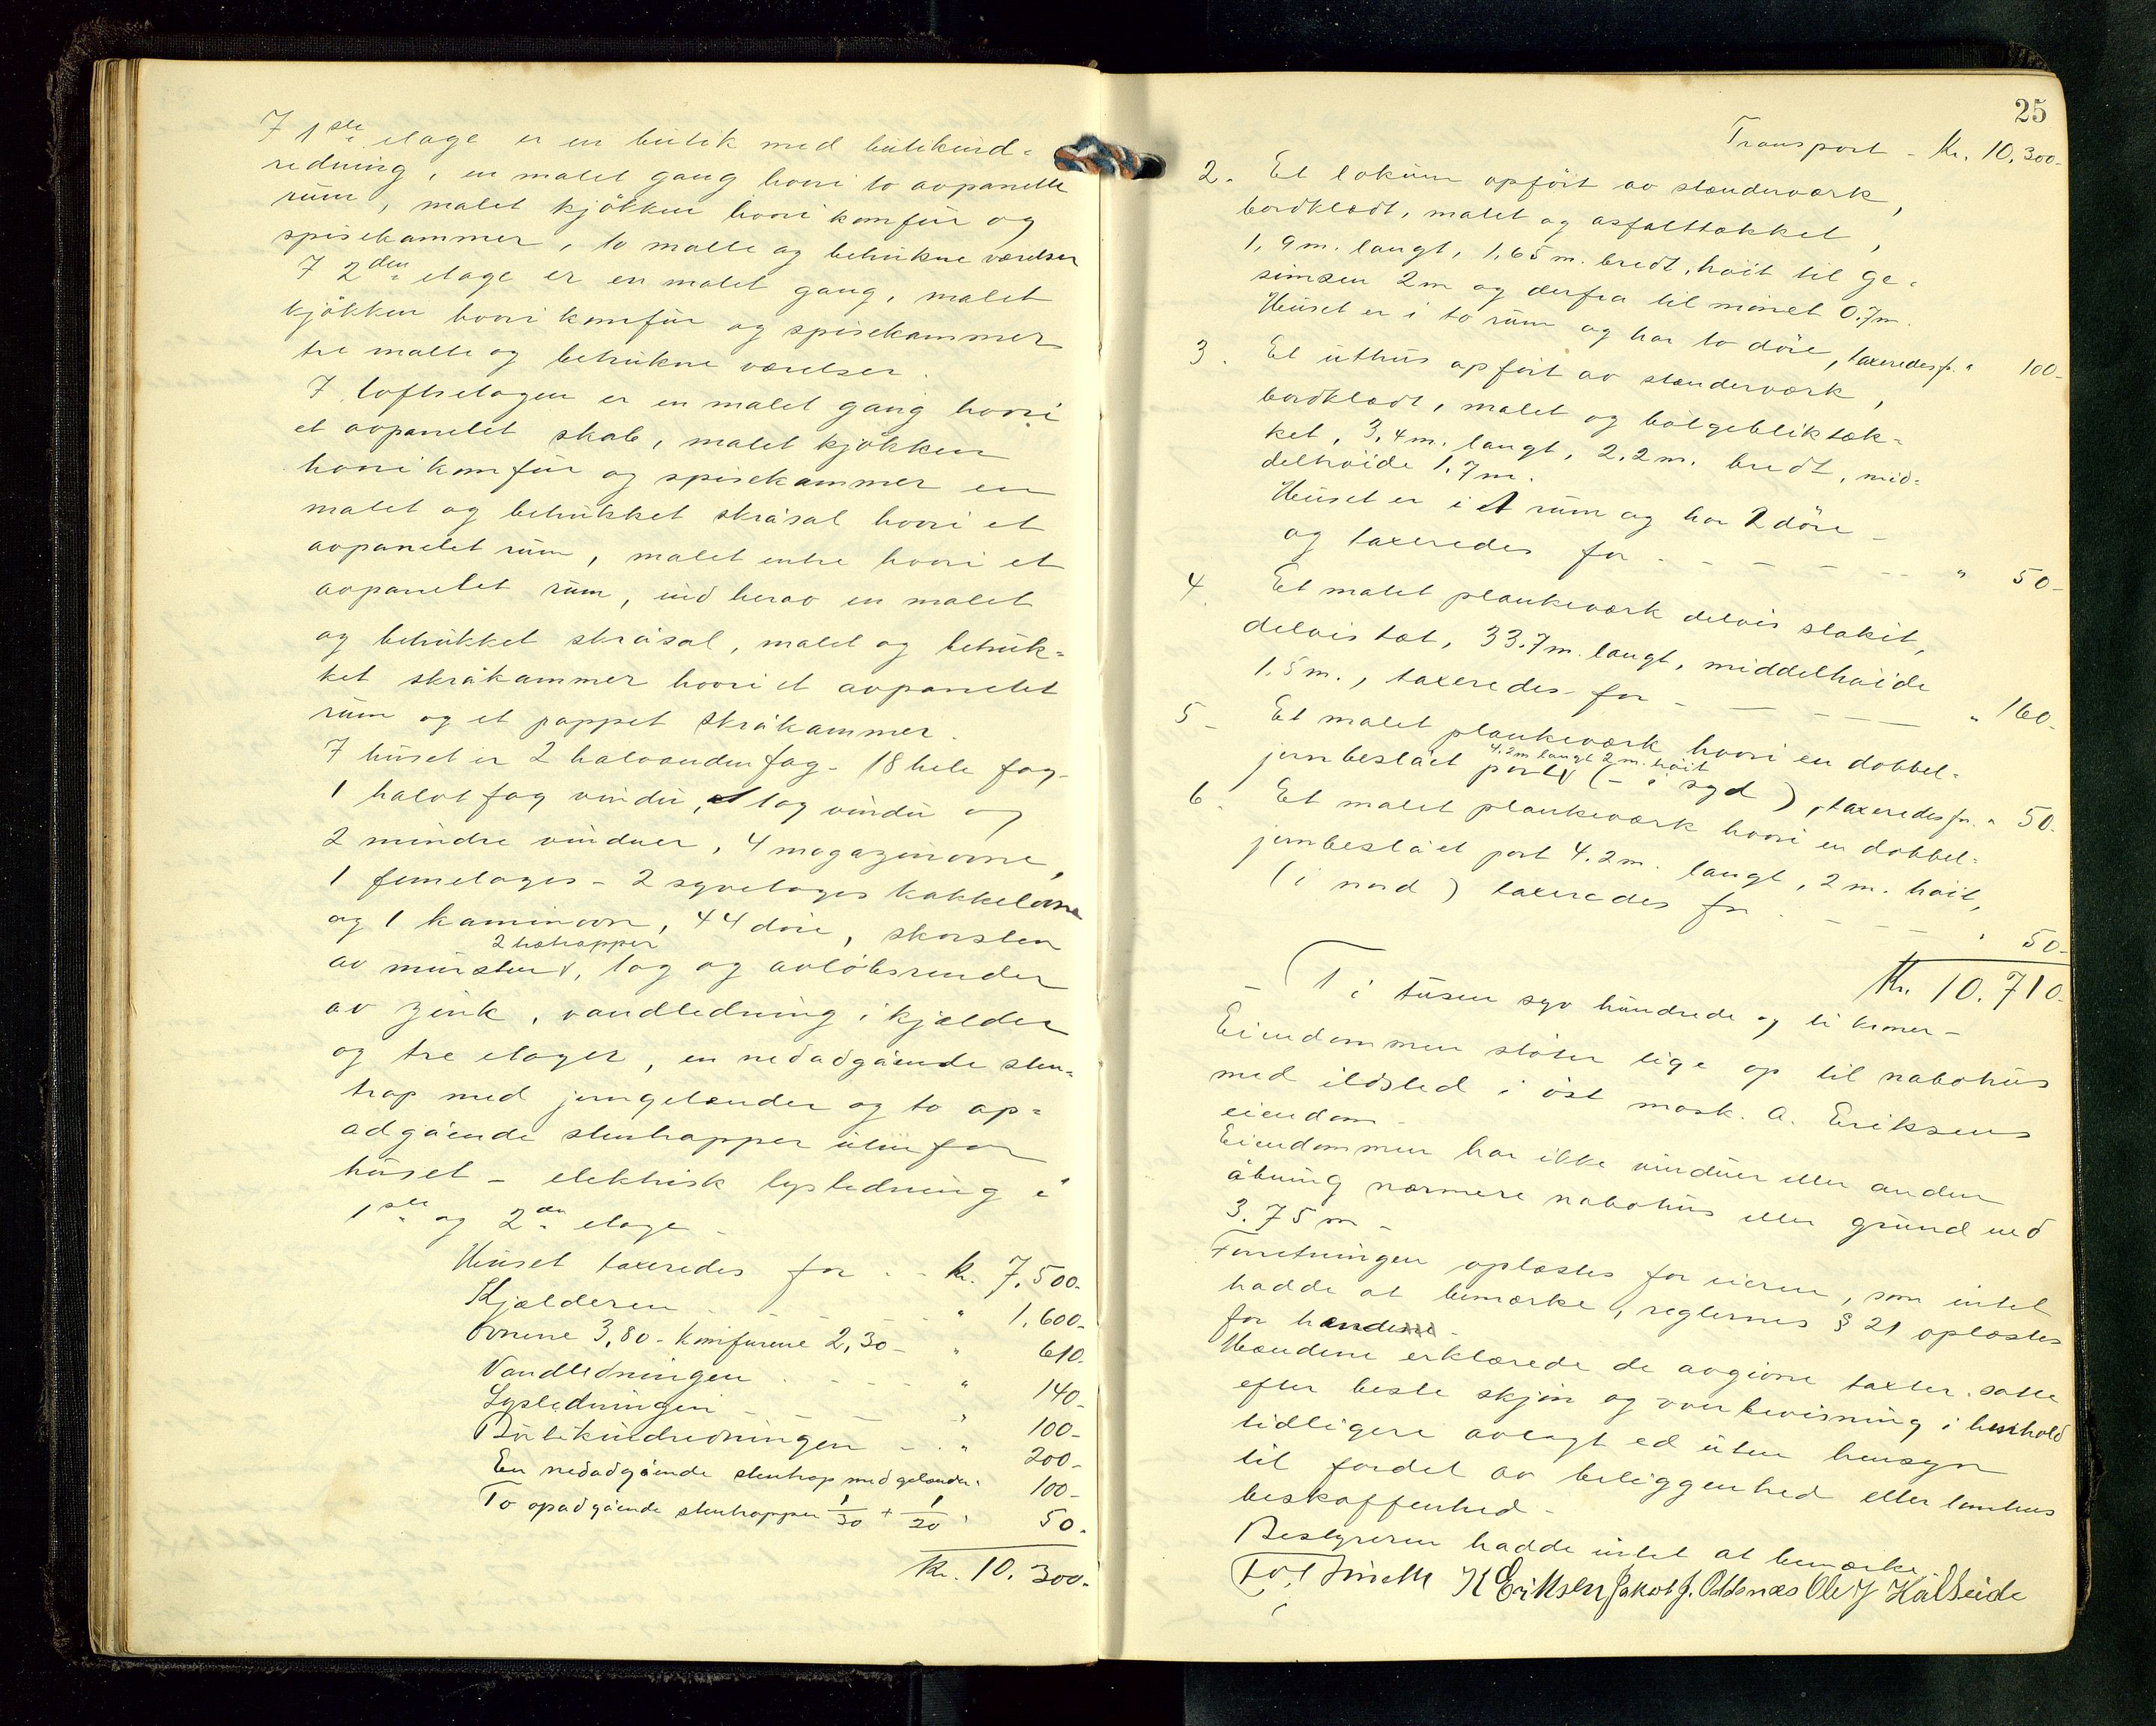 I 1ste etage er en butik med butikind-
redning, en malet gang hvori to avpanelte
rum, malet kjøkken hvori komfur og
spisekammer, to malte og betrukne værelser
I 2den etage er en malet gang, malet
kjøkken hvori komfur og spisekammer
tre malte og betrukne værelser.
I loftsetagen er en malet gang hvori
et avpanelet skab, malet kjøkken
hvori komfur og spisekammer en
malet og betrukket skråsal hvori et
avpanelet rum, malet entre hvori et
avpanelet rum, ind herav en malet
og betrukket skråsal, malet og betruk-
ket skråkammer hvori et avpanelet
rum og et pappet skråkammer.
I huset er 2 halvanden fag - 18 hele fag -
1 halvt fag vindu, et tag vindu og
2 mindre vinduer, 4 magazinovne,
1 femetages - 2 syvetages kakkelovne
og 1 kaminovn, 44 døre, skorsten
2 trætrapper
av mursten v, tag og avløbsrender
av zink, vandledning i kjælder
og tre etager, en nedadgående sten-
trap med jerngelænder og to op-
adgående stentrapper utenfor
huset - elektrisk lysledning i
1ste og 2den etage -
Huset taxeredes for - - kr. 7,500-
Kjælderen - - - " 1,600-
Ovnene 3,80 - Komfurene 2,30 - " 610-
Vandledningen - - - " 140-
Lysledningen - - - " 100-
Butikindredningen - - " 200-
En nedadgående stentrap med gelænder " 100-
To opadgående stentrapper 1/30 + 1/20 " 50-
Kr. 10,300-
25
Transport - Kr. 10,300-
2. Et lokum opført av stænderværk,
bordklædt, malet og asfalttækket,
1,9 m. langt, 1,65 m. bredt, høit til ge-
simsen 2 m og derfra til mønet 0.7 m.
Huset er i to rum og har to døre, taxeredes fr. " 100-
3. Et uthus opført av stænderværk,
bordklædt, malet og bølgebliktæk-
ket, 3,4 m. langt, 2.2 m. bredt, mid-
delhøide 1,7 m.
Huset er i et rum og har 2 døre -
og taxeredes for - - - - - " 50-
4. Et malet plankeværk delvis stakit,
delvis tæt, 33.7 m. langt, middelhøide
1.5 m., taxeredes for - - - " 160-
5- Et malet plankeværk hvori en dobbel-
4.2 m langt 2 m. høit
jernbeslået port v (- i syd), taxeredes for " 50-
6. Et malet plankeværk hvori en dobbel-
jernbeslået port 4.2 m. langt, 2 m. høit,
(i nord) taxeredes for - - - " 50-
Kr. 10.710-
- Ti tusen syv hundrede og ti kroner -
Eiendommen støter lige op til nabohus
med ildsted i øst mask. A. Eriksens
eiendom -
Eiendommen har ikke vinduer eller anden
åbning nærmere nabohus eller grund end
3.75 m -
Forretningen oplæstes for eieren, som intet
hadde at bemærke, reglernes § 21 oplæstes
for hændene -
Mændene erklærede de avgivne taxter satte
efter beste skjøn og overbevisning i henhold
tidligere avlagt ed uten hensyn
til fordel av beliggenhed eller tomtens
beskaffenhed -
Bestyreren hadde intet at bemærke.
K Eriksen Jakob J. Oddsnæs Ole J Halseide